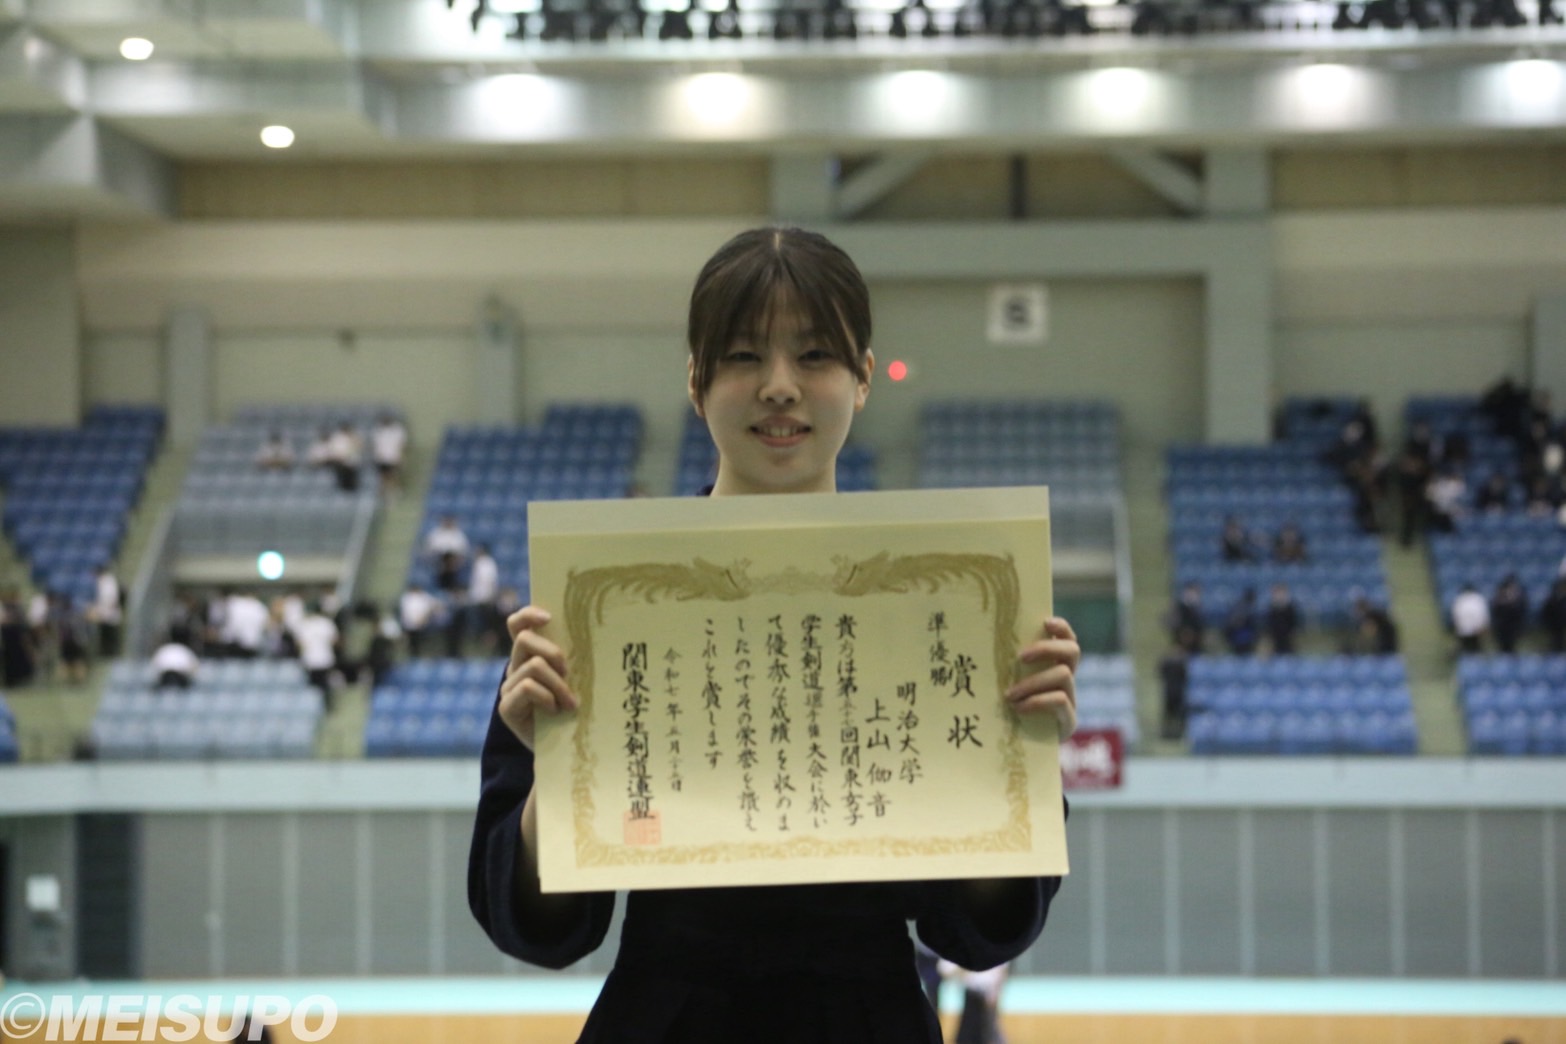 賞状
準優勝
明治大学
上山 御音
貴方は第五十一回関東女子
学生剣道選手権大会に於い
て優秀な成績を収めま
したのでその栄誉を讃え
これを賞します
令和七年五月
関東学生剣道連盟
©MEISUPO